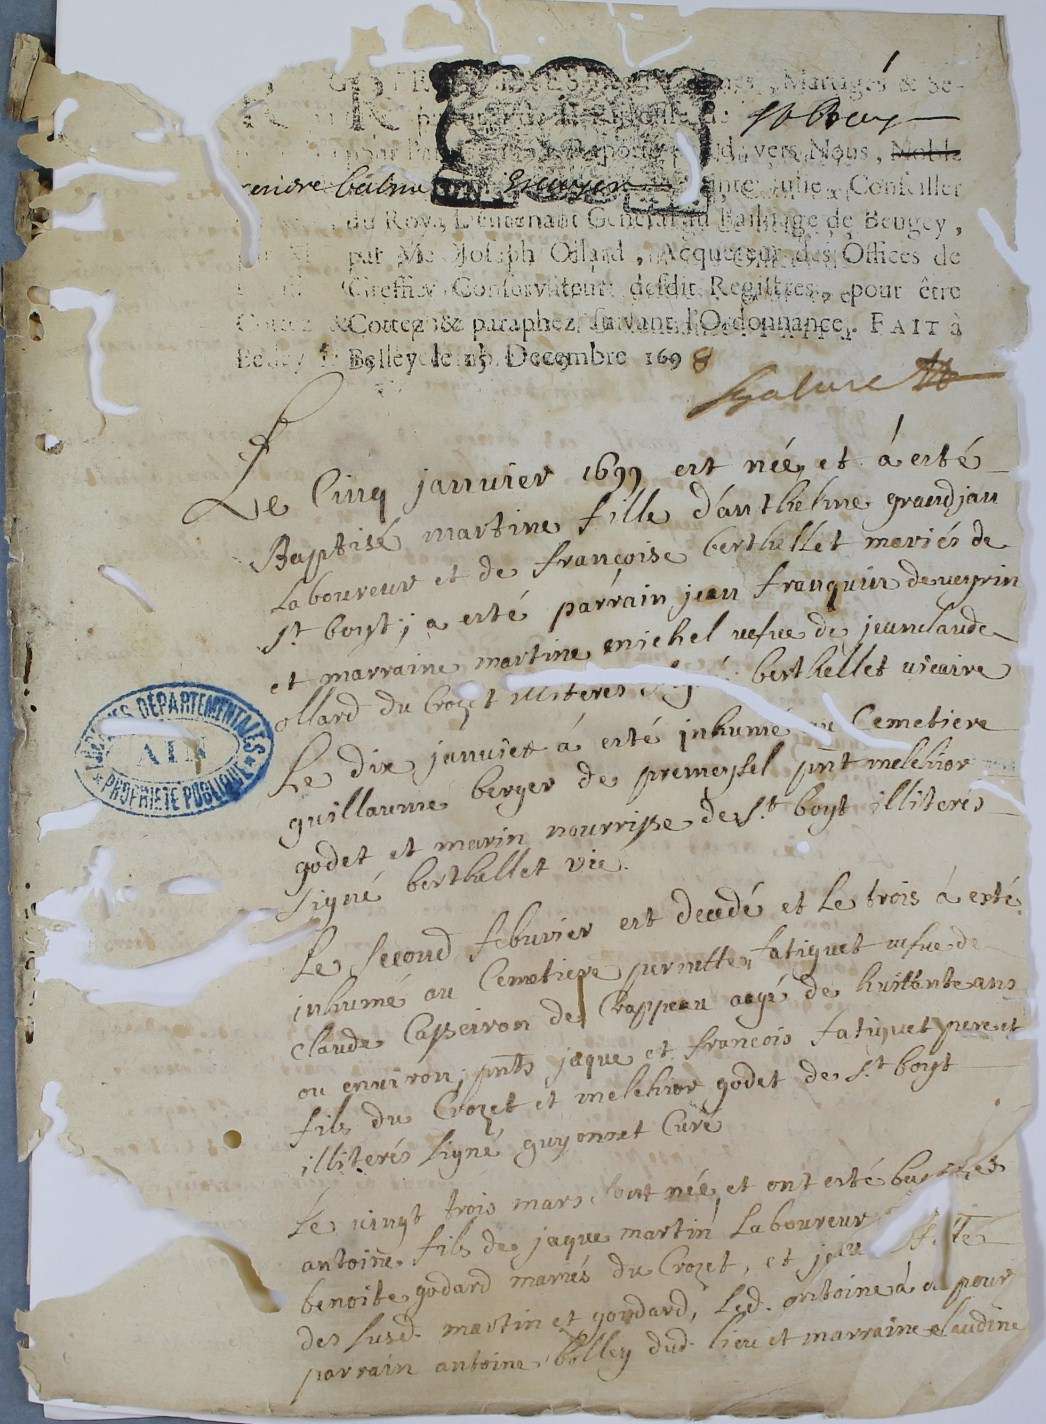 Mariages & Se-
St Boy
vers Nous, Noble
Conseiller
du Roy, Lieutenant General au Bailliage de Beugey,
par Me Joseph Oilard, Acquereur des Offices de
Greffier Conservateur desdit Registres, pour être
Cottez & paraphez, suivant l'Ordonnance. FAIT à
Belley le 15 Decembre 1698
Le Cinq janvier 1699 est née et á esté
Baptisé martine fille d'anthelme grandjan
Laboureur et de françoise berthellet mariés de
st. boyt; a esté parrain jean franquin de veyrin
et marraine martine michel vefve de jean claude
ollard du Crozet illiteres berthellet vicaire
Le dix janvier á esté inhumé au Cemetiere
guillaume berger de premeysel pnt melchior
godet et marin nourrisse de st. boyt illiterés
signé berthellet vic.
Le second febvrier est decedé et le trois á esté
inhumé au Cemetiere pernette fatiguet vefve de
claude Cappeiron de Chappeau agé de huittante ans
ou environ; pnts jaque et francois fatiguet pere et
fils du Crozet et melchior godet de st. boyt
illiterés signé guyonnet Curé
Le vingt trois mars sont née et ont esté baptises
antoine fils de jaque martin Laboureur
benoite godard mariés du Crozet, et
des susd. martin et godard, led. antoine á eu pour
parrain antoine bolley dud. lieu et marraine claudine
ARCHIVES DÉPARTEMENTALES
AIN
PROPRIÉTÉ PUBLIQUE